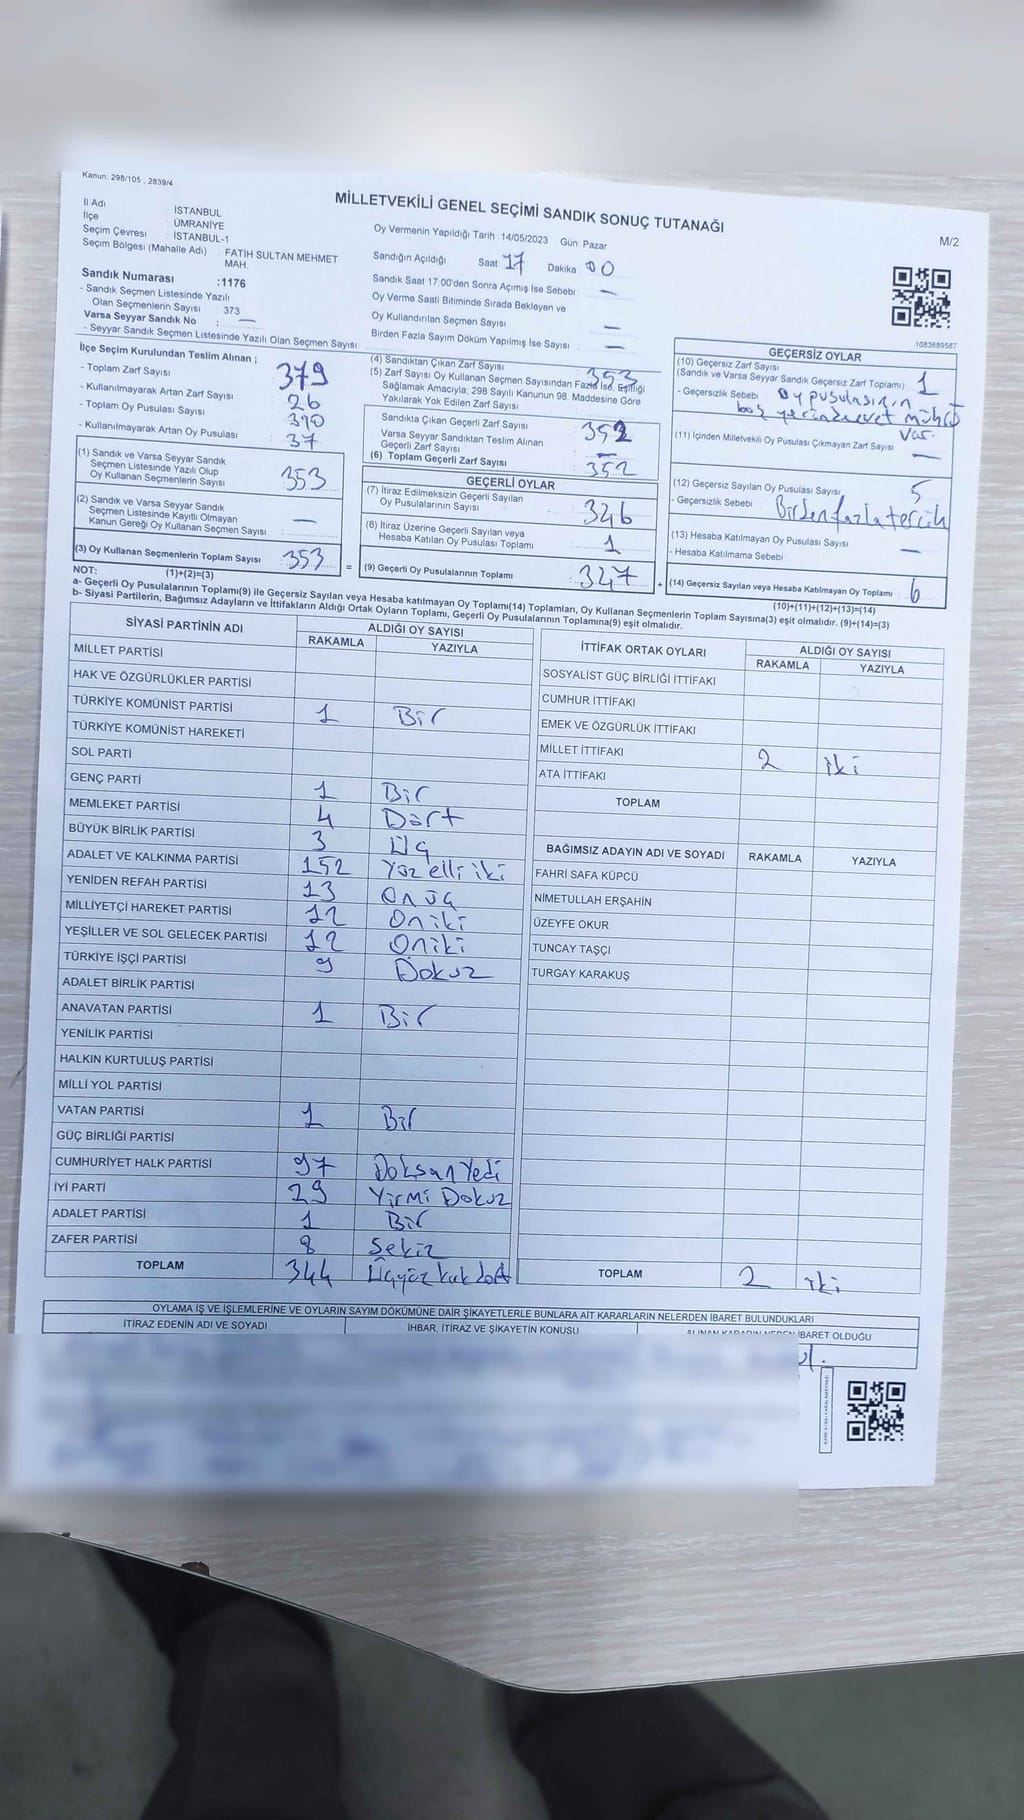 Kanun: 298/105 , 2839/4
MİLLETVEKİLİ GENEL SEÇİMİ SANDIK SONUÇ TUTANAĞI
M/2
İl Adı İSTANBUL
İlçe ÜMRANİYE
Seçim Çevresi : İSTANBUL-1
Seçim Bölgesi (Mahalle Adı) : FATİH SULTAN MEHMET MAH.
Sandık Numarası :1176
- Sandık Seçmen Listesinde Yazılı
Olan Seçmenlerin Sayısı : 373
Varsa Seyyar Sandık No : —
- Seyyar Sandık Seçmen Listesinde Yazılı Olan Seçmen Sayısı:
Oy Vermenin Yapıldığı Tarih :14/05/2023 Gün: Pazar
Sandığın Açıldığı Saat: 17 Dakika: 00
Sandık Saat 17.00'den Sonra Açımış İse Sebebi : —
Oy Verme Saati Bitiminde Sırada Bekleyen ve
Oy Kullandırılan Seçmen Sayısı : —
Birden Fazla Sayım Döküm Yapılmış İse Sayısı : —
1083689587
İlçe Seçim Kurulundan Teslim Alınan ;
- Toplam Zarf Sayısı : 379
- Kullanılmayarak Artan Zarf Sayısı : 26
- Toplam Oy Pusulası Sayısı : 390
- Kullanılmayarak Artan Oy Pusulası : 37
(1) Sandık ve Varsa Seyyar Sandık
Seçmen Listesinde Yazılı Olup
Oy Kullanan Seçmenlerin Sayısı : 353
(2) Sandık ve Varsa Seyyar Sandık
Seçmen Listesinde Kayıtlı Olmayan
Kanun Gereği Oy Kullanan Seçmen Sayısı : —
(3) Oy Kullanan Seçmenlerin Toplam Sayısı : 353
(1)+(2)=(3)
(4) Sandıktan Çıkan Zarf Sayısı : 353
(5) Zarf Sayısı Oy Kullanan Seçmen Sayısından Fazla İse, Eşitliği
Sağlamak Amacıyla, 298 Sayılı Kanunun 98. Maddesine Göre
Yakılarak Yok Edilen Zarf Sayısı :
Sandıkta Çıkan Geçerli Zarf Sayısı : 352
Varsa Seyyar Sandıktan Teslim Alınan
Geçerli Zarf Sayısı : —
(6) Toplam Geçerli Zarf Sayısı : 352
GEÇERLİ OYLAR
(7) İtiraz Edilmeksizin Geçerli Sayılan
Oy Pusulalarının Sayısı : 346
(8) İtiraz Üzerine Geçerli Sayılan veya
Hesaba Katılan Oy Pusulası Toplamı : 1
= (9) Geçerli Oy Pusulalarının Toplamı : 347
GEÇERSİZ OYLAR
(10) Geçersiz Zarf Sayısı
(Sandık ve Varsa Seyyar Sandık Geçersiz Zarf Toplamı) : 1
- Geçersizlik Sebebi : Oy pusulasının
boş yerinde evet mührü
var.
(11) İçinden Milletvekili Oy Pusulası Çıkmayan Zarf Sayısı : —
(12) Geçersiz Sayılan Oy Pusulası Sayısı : 5
- Geçersizlik Sebebi : Birden fazla tercih
(13) Hesaba Katılmayan Oy Pusulası Sayısı : —
- Hesaba Katılmama Sebebi :
+ (14) Geçersiz Sayılan veya Hesaba Katılmayan Oy Toplamı : 6
(10)+(11)+(12)+(13)=(14)
NOT:
a- Geçerli Oy Pusulalarının Toplamı(9) ile Geçersiz Sayılan veya Hesaba katılmayan Oy Toplamı(14) Toplamları, Oy Kullanan Seçmenlerin Toplam Sayısına(3) eşit olmalıdır. (9)+(14)=(3)
b- Siyasi Partilerin, Bağımsız Adayların ve İttifakların Aldığı Ortak Oyların Toplamı, Geçerli Oy Pusulalarının Toplamına(9) eşit olmalıdır.
SİYASİ PARTİNİN ADI ALDIĞI OY SAYISI
RAKAMLA YAZIYLA
MİLLET PARTİSİ
HAK VE ÖZGÜRLÜKLER PARTİSİ
TÜRKİYE KOMÜNİST PARTİSİ 1 Bir
TÜRKİYE KOMÜNİST HAREKETİ
SOL PARTİ
GENÇ PARTİ 1 Bir
MEMLEKET PARTİSİ 4 Dört
BÜYÜK BİRLİK PARTİSİ 3 Üç
ADALET VE KALKINMA PARTİSİ 152 Yüz elli iki
YENİDEN REFAH PARTİSİ 13 Onüç
MİLLİYETÇİ HAREKET PARTİSİ 12 Oniki
YEŞİLLER VE SOL GELECEK PARTİSİ 12 Oniki
TÜRKİYE İŞÇİ PARTİSİ 9 Dokuz
ADALET BİRLİK PARTİSİ
ANAVATAN PARTİSİ 1 Bir
YENİLİK PARTİSİ
HALKIN KURTULUŞ PARTİSİ
MİLLİ YOL PARTİSİ
VATAN PARTİSİ 1 Bir
GÜÇ BİRLİĞİ PARTİSİ
CUMHURİYET HALK PARTİSİ 97 Doksan Yedi
İYİ PARTİ 29 Yirmi Dokuz
ADALET PARTİSİ 1 Bir
ZAFER PARTİSİ 8 Sekiz
TOPLAM 344 Üçyüz kırk dört
İTTİFAK ORTAK OYLARI ALDIĞI OY SAYISI
RAKAMLA YAZIYLA
SOSYALİST GÜÇ BİRLİĞİ İTTİFAKI
CUMHUR İTTİFAKI
EMEK VE ÖZGÜRLÜK İTTİFAKI
MİLLET İTTİFAKI 2 iki
ATA İTTİFAKI
TOPLAM
BAĞIMSIZ ADAYIN ADI VE SOYADI RAKAMLA YAZIYLA
FAHRİ SAFA KÜPCÜ
NİMETULLAH ERŞAHİN
ÜZEYFE OKUR
TUNCAY TAŞÇI
TURGAY KARAKUŞ
TOPLAM 2 iki
OYLAMA İŞ VE İŞLEMLERİNE VE OYLARIN SAYIM DÖKÜMÜNE DAİR ŞİKAYETLERLE BUNLARA AİT KARARLARIN NELERDEN İBARET BULUNDUKLARI
İTİRAZ EDENİN ADI VE SOYADI İHBAR, İTİRAZ VE ŞİKAYETİN KONUSU ALINAN KARARIN NEDEN İBARET OLDUĞU